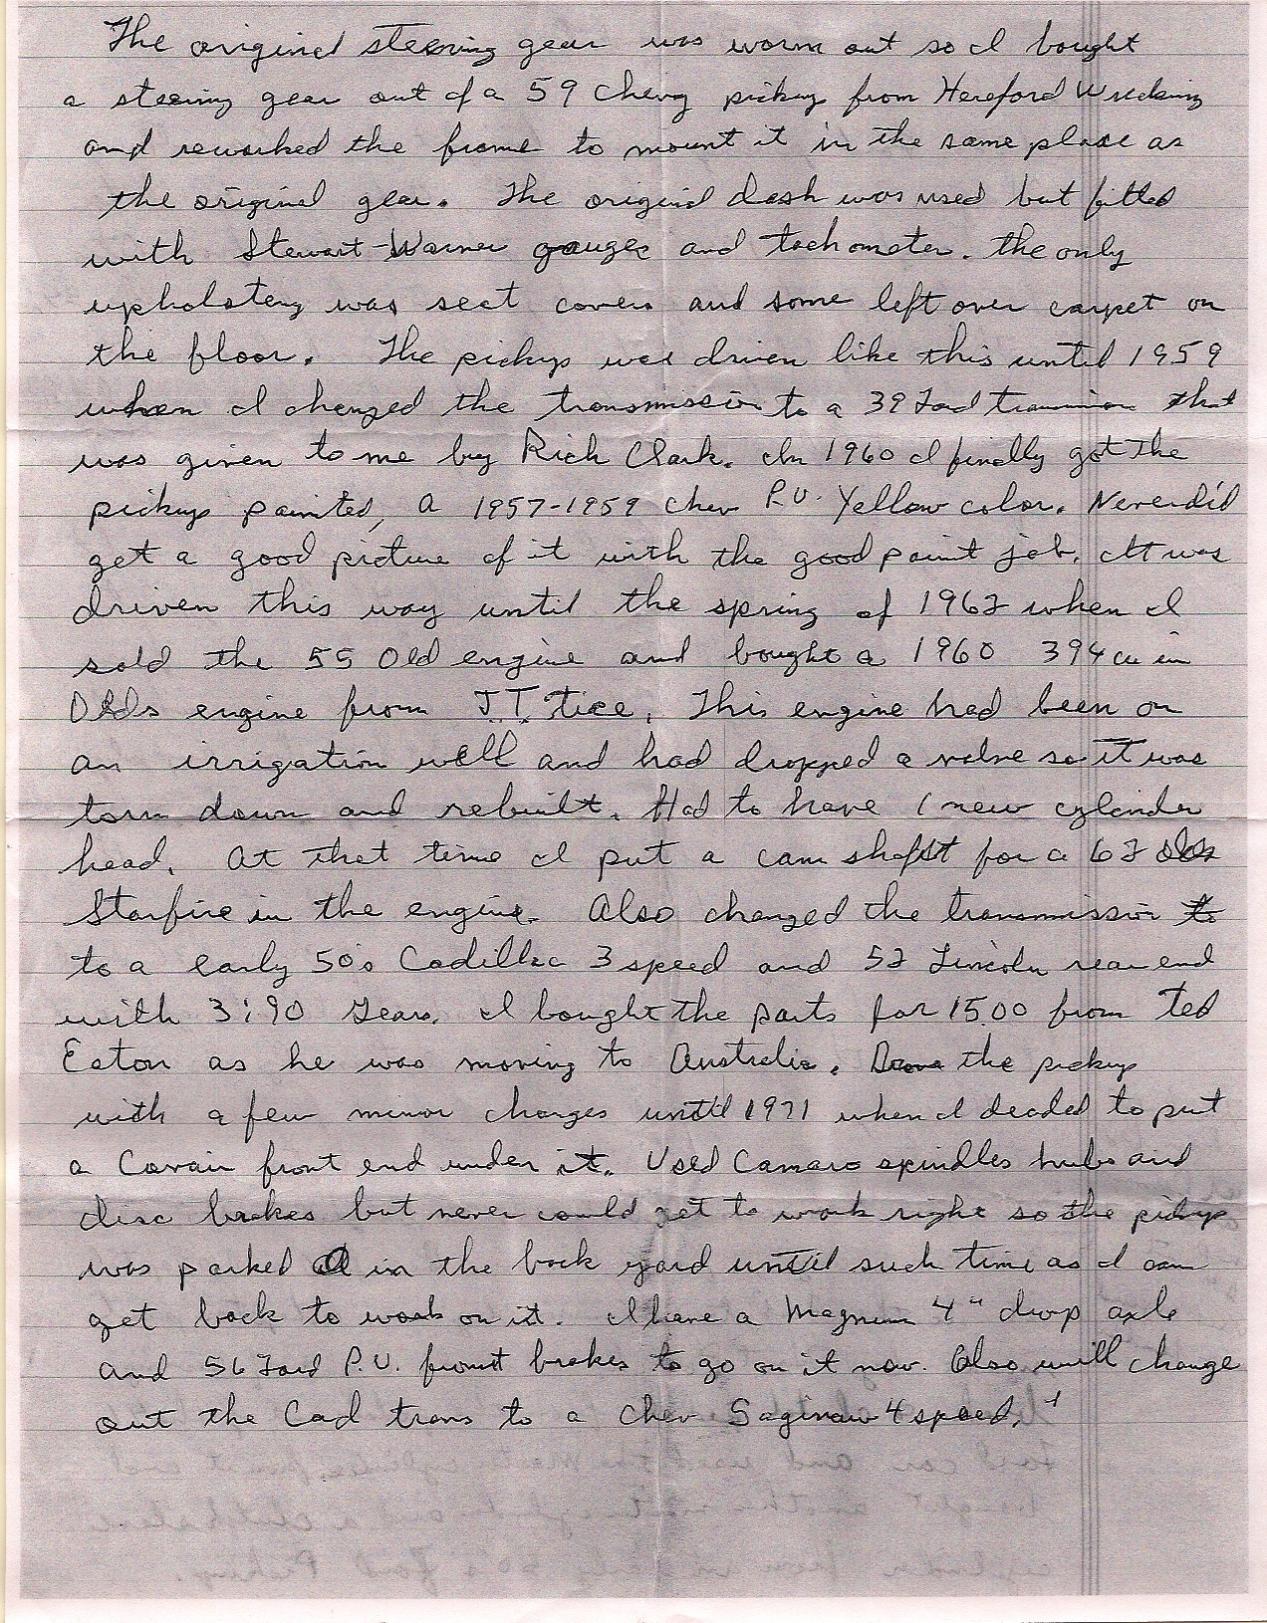 The original steering gear was worn out so I bought
a steering gear out of a 59 Chevy pickup from Hereford Wrecking
and reworked the frame to mount it in the same place as
the original gear. The original dash was used but fitted
with Stewart-Warner gauges and tachometer. The only
upholstery was seat covers and some left over carpet on
the floor. The pickup was driven like this until 1959
when I changed the transmission to a 39 Ford transmission that
was given to me by Rich Clark. In 1960 I finally got the
pickup painted, a 1957-1959 Chev P.U. Yellow color. Never did
get a good picture of it with the good paint job. It was
driven this way until the spring of 1962 when I
sold the 55 Old engine and bought a 1960 394 cu in
Olds engine from J.T. Tice. This engine had been on
an irrigation well and had dropped a valve so it was
torn down and rebuilt. Had to have 1 new cylinder
head. At that time I put a cam shaft for a 62 Olds
Starfire in the engine. Also changed the transmission to
to a early 50's Cadillac 3 speed and 52 Lincoln rear end
with 3:90 Gears. I bought the parts for 15.00 from Ted
Eaton as he was moving to Australia. Drove the pickup
with a few minor changes until 1971 when I decided to put
a Corvair front end under it. Used Camaro spindles hubs and
disc brakes but never could get to work right so the pickup
was parked in the back yard until such time as I can
get back to work on it. I have a Magnum 4" drop axle
and 56 Ford P.U. front brakes to go on it now. Also will change
out the Cad trans to a Chev Saginaw 4 speed.